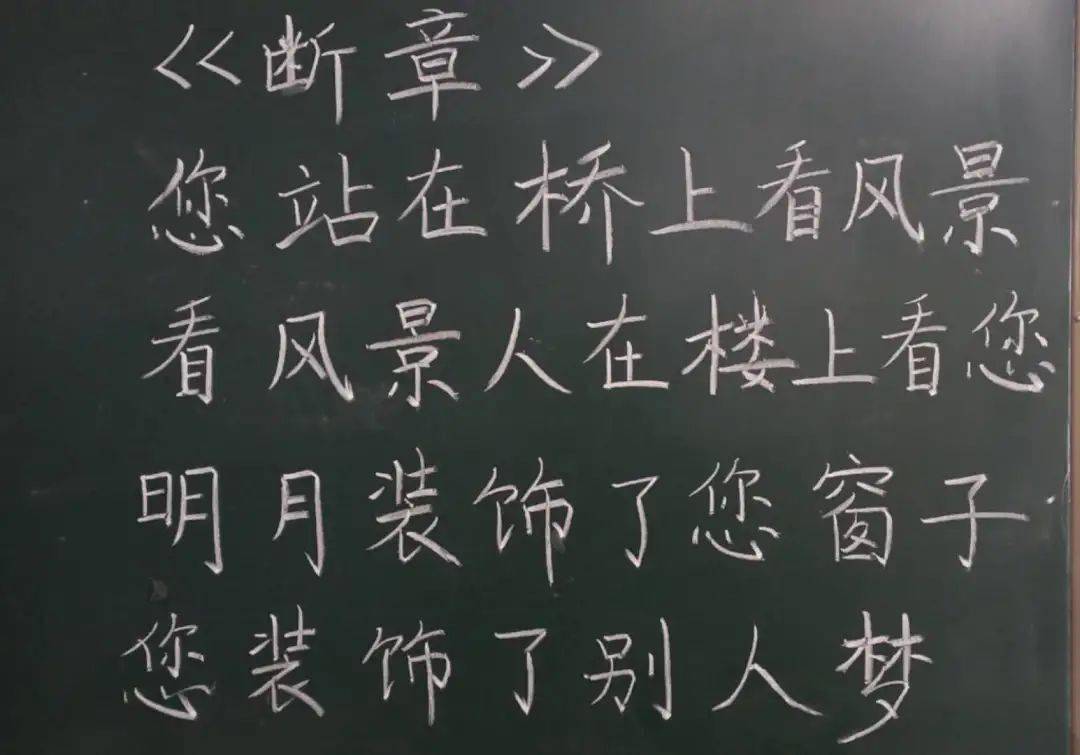 <<断章>>
您站在桥上看风景
看风景人在楼上看您
明月装饰了您窗子
您装饰了别人梦